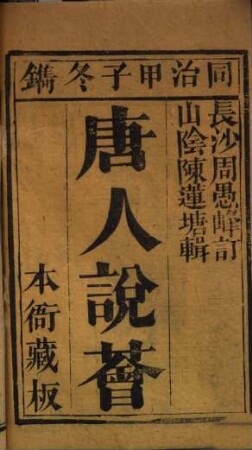 同治甲子冬鐫
長沙周愚峰訂
山陰陳蓮塘輯
唐人說薈
本衙藏板